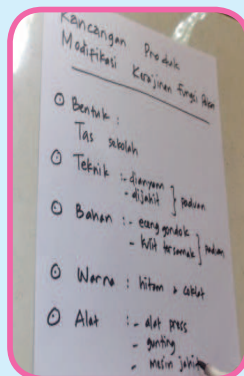 Rancangan Produk
Modifikasi Kerajinan Fungsi Pakai
Bentuk :
Tas sekolah
Teknik : - dianyam
- dijahit } paduan
Bahan : - eceng gondok
- kulit tersamak } paduan
Warna : hitam & coklat
Alat : - alat press
- gunting
- mesin jahit